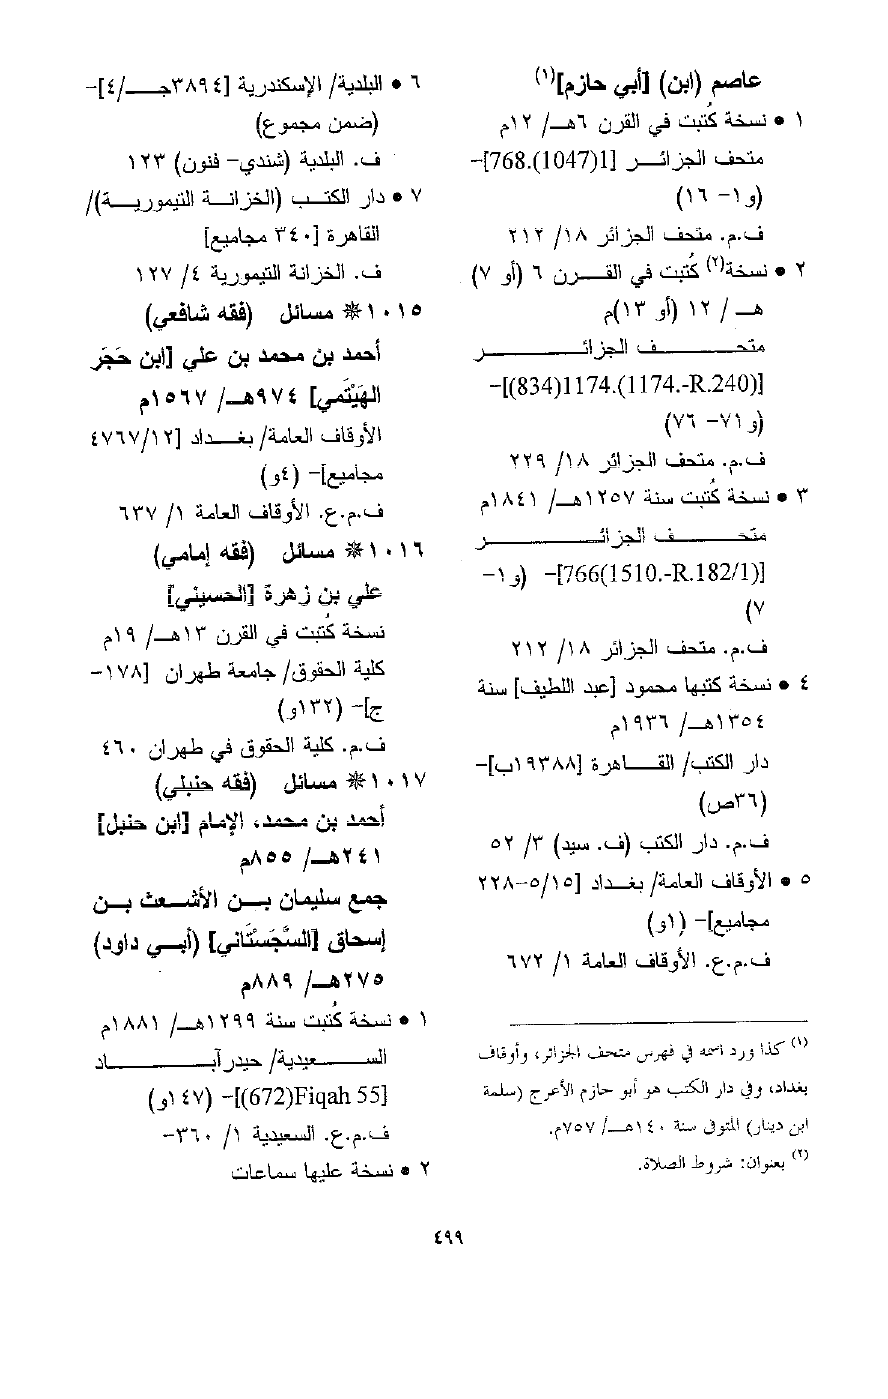 عاصم (ابن) [أبي حازم](١)
١ • نسخة كُتبت في القرن ٦هـ/ ١٢م
متحف الجزائـر [768.(1047)1]-
(و١- ١٦)
ف.م. متحف الجزائر ١٨/ ٢١٢
٢ • نسخة(٢) كُتبت في القـرن ٦ (أو ٧)
هـ / ١٢ (أو ١٣)م
متحـف الجزائـر
[(834)1174.(1174.-R.240)]-
(و٧١- ٧٦)
ف.م. متحف الجزائر ١٨/ ٢٢٩
٣ • نسخة كُتبت سنة ١٢٥٧هـ/ ١٨٤١م
متحـف الجزائـر
[766(1510.-R.182/1)]- (و١-
٧)
ف.م. متحف الجزائر ١٨/ ٢١٢
٤ • نسخة كتبها محمود [عبد اللطيف] سنة
١٣٥٤هـ/ ١٩٣٦م
دار الكتب/ القـاهرة [١٩٣٨٨ب]-
(٣٦ص)
ف.م. دار الكتب (ف. سيد) ٣/ ٥٢
٥ • الأوقاف العامة/ بغـداد [٥/١٥-٢٢٨
مجاميع]- (١و)
ف.م.ع. الأوقاف العامة ١/ ٦٧٢
(١) كذا ورد اسمه في فهرس متحف الجزائر، وأوقاف
بغداد، وفي دار الكتب هو أبو حازم الأعرج (سلمة
ابن دينار) المتوفى سنة ١٤٠هـ/ ٧٥٧م.
(٢) بعنوان: شروط الصلاة.
٦ • البلدية/ الإسكندرية [٣٨٩٤جـ/٤]-
(ضمن مجموع)
ف. البلدية (شندي- فنون) ١٢٣
٧ • دار الكتـب (الخزانـة التيموريـة)/
القاهرة [٣٤٠ مجاميع]
ف. الخزانة التيمورية ٤/ ١٢٧
١٠١٥ ❋ مسائل (فقه شافعي)
أحمد بن محمد بن علي [ابن حَجَر
الهَيْتَمي] ٩٧٤هـ/ ١٥٦٧م
الأوقاف العامة/ بغـداد [٤٧٦٧/١٢
مجاميع]- (٤و)
ف.م.ع. الأوقاف العامة ١/ ٦٣٧
١٠١٦ ❋ مسائل (فقه إمامي)
علي بن زهرة [الحسيني]
نسخة كُتبت في القرن ١٣هـ/ ١٩م
كلية الحقوق/ جامعة طهران [١٧٨-
ج]- (١٣٢و)
ف.م. كلية الحقوق في طهران ٤٦٠
١٠١٧ ❋ مسائل (فقه حنبلي)
أحمد بن محمد، الإمام [ابن حنبل]
٢٤١هـ/ ٨٥٥م
جمع سليمان بـن الأشـعث بـن
إسحاق [السِّجِسْتَاني] (أبـي داود)
٢٧٥هـ/ ٨٨٩م
١ • نسخة كُتبت سنة ١٢٩٩هـ/ ١٨٨١م
السـعيدية/ حيدرآبـاد
[(672)Fiqah 55]- (١٤٧و)
ف.م.ع. السعيدية ١/ ٣٦٠-
٢ • نسخة عليها سماعات
٤٩٩